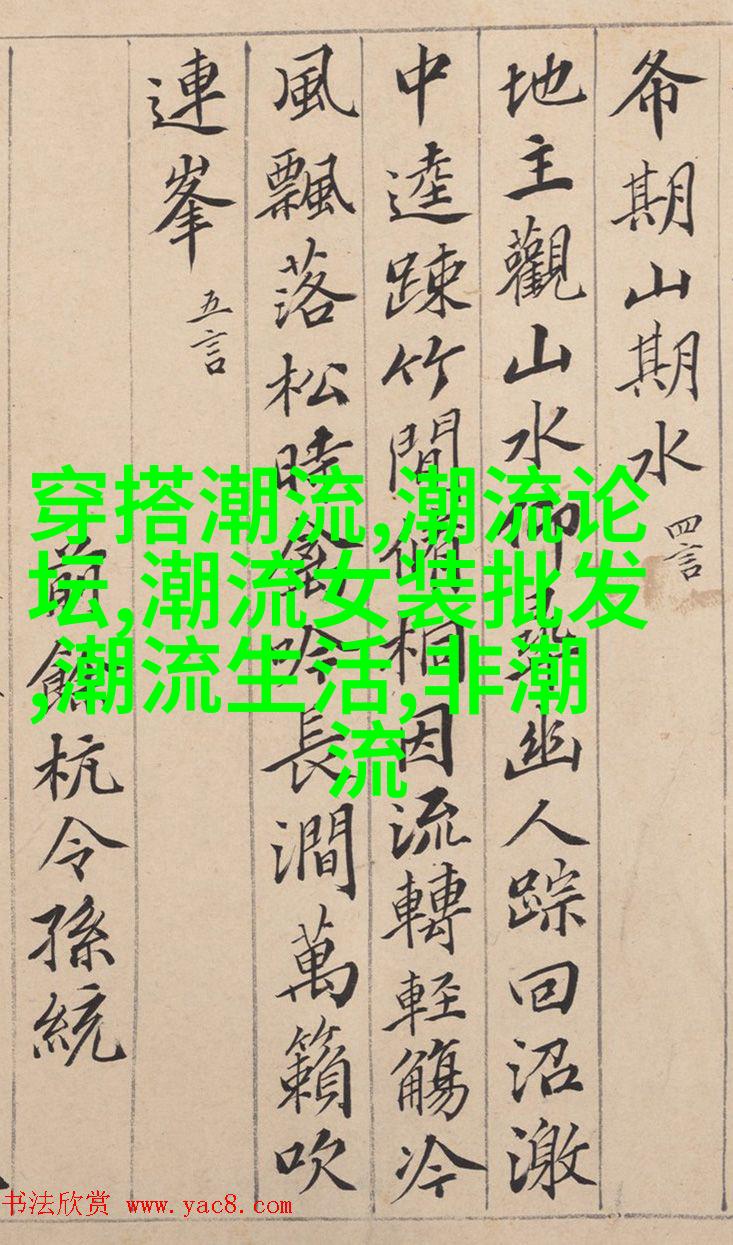 希期山期水 四言
地主觀山水仰尋幽人踪回沼激
中逵踈竹間脩桐因流轉輕觴冷
風飄落松時禽吟長澗萬籟吹
連峯 五言
前餘杭令孫統
穿搭潮流,潮流论
坛,潮流女装批发
,潮流生活,非潮
流
书法欣赏 www.yac8.com